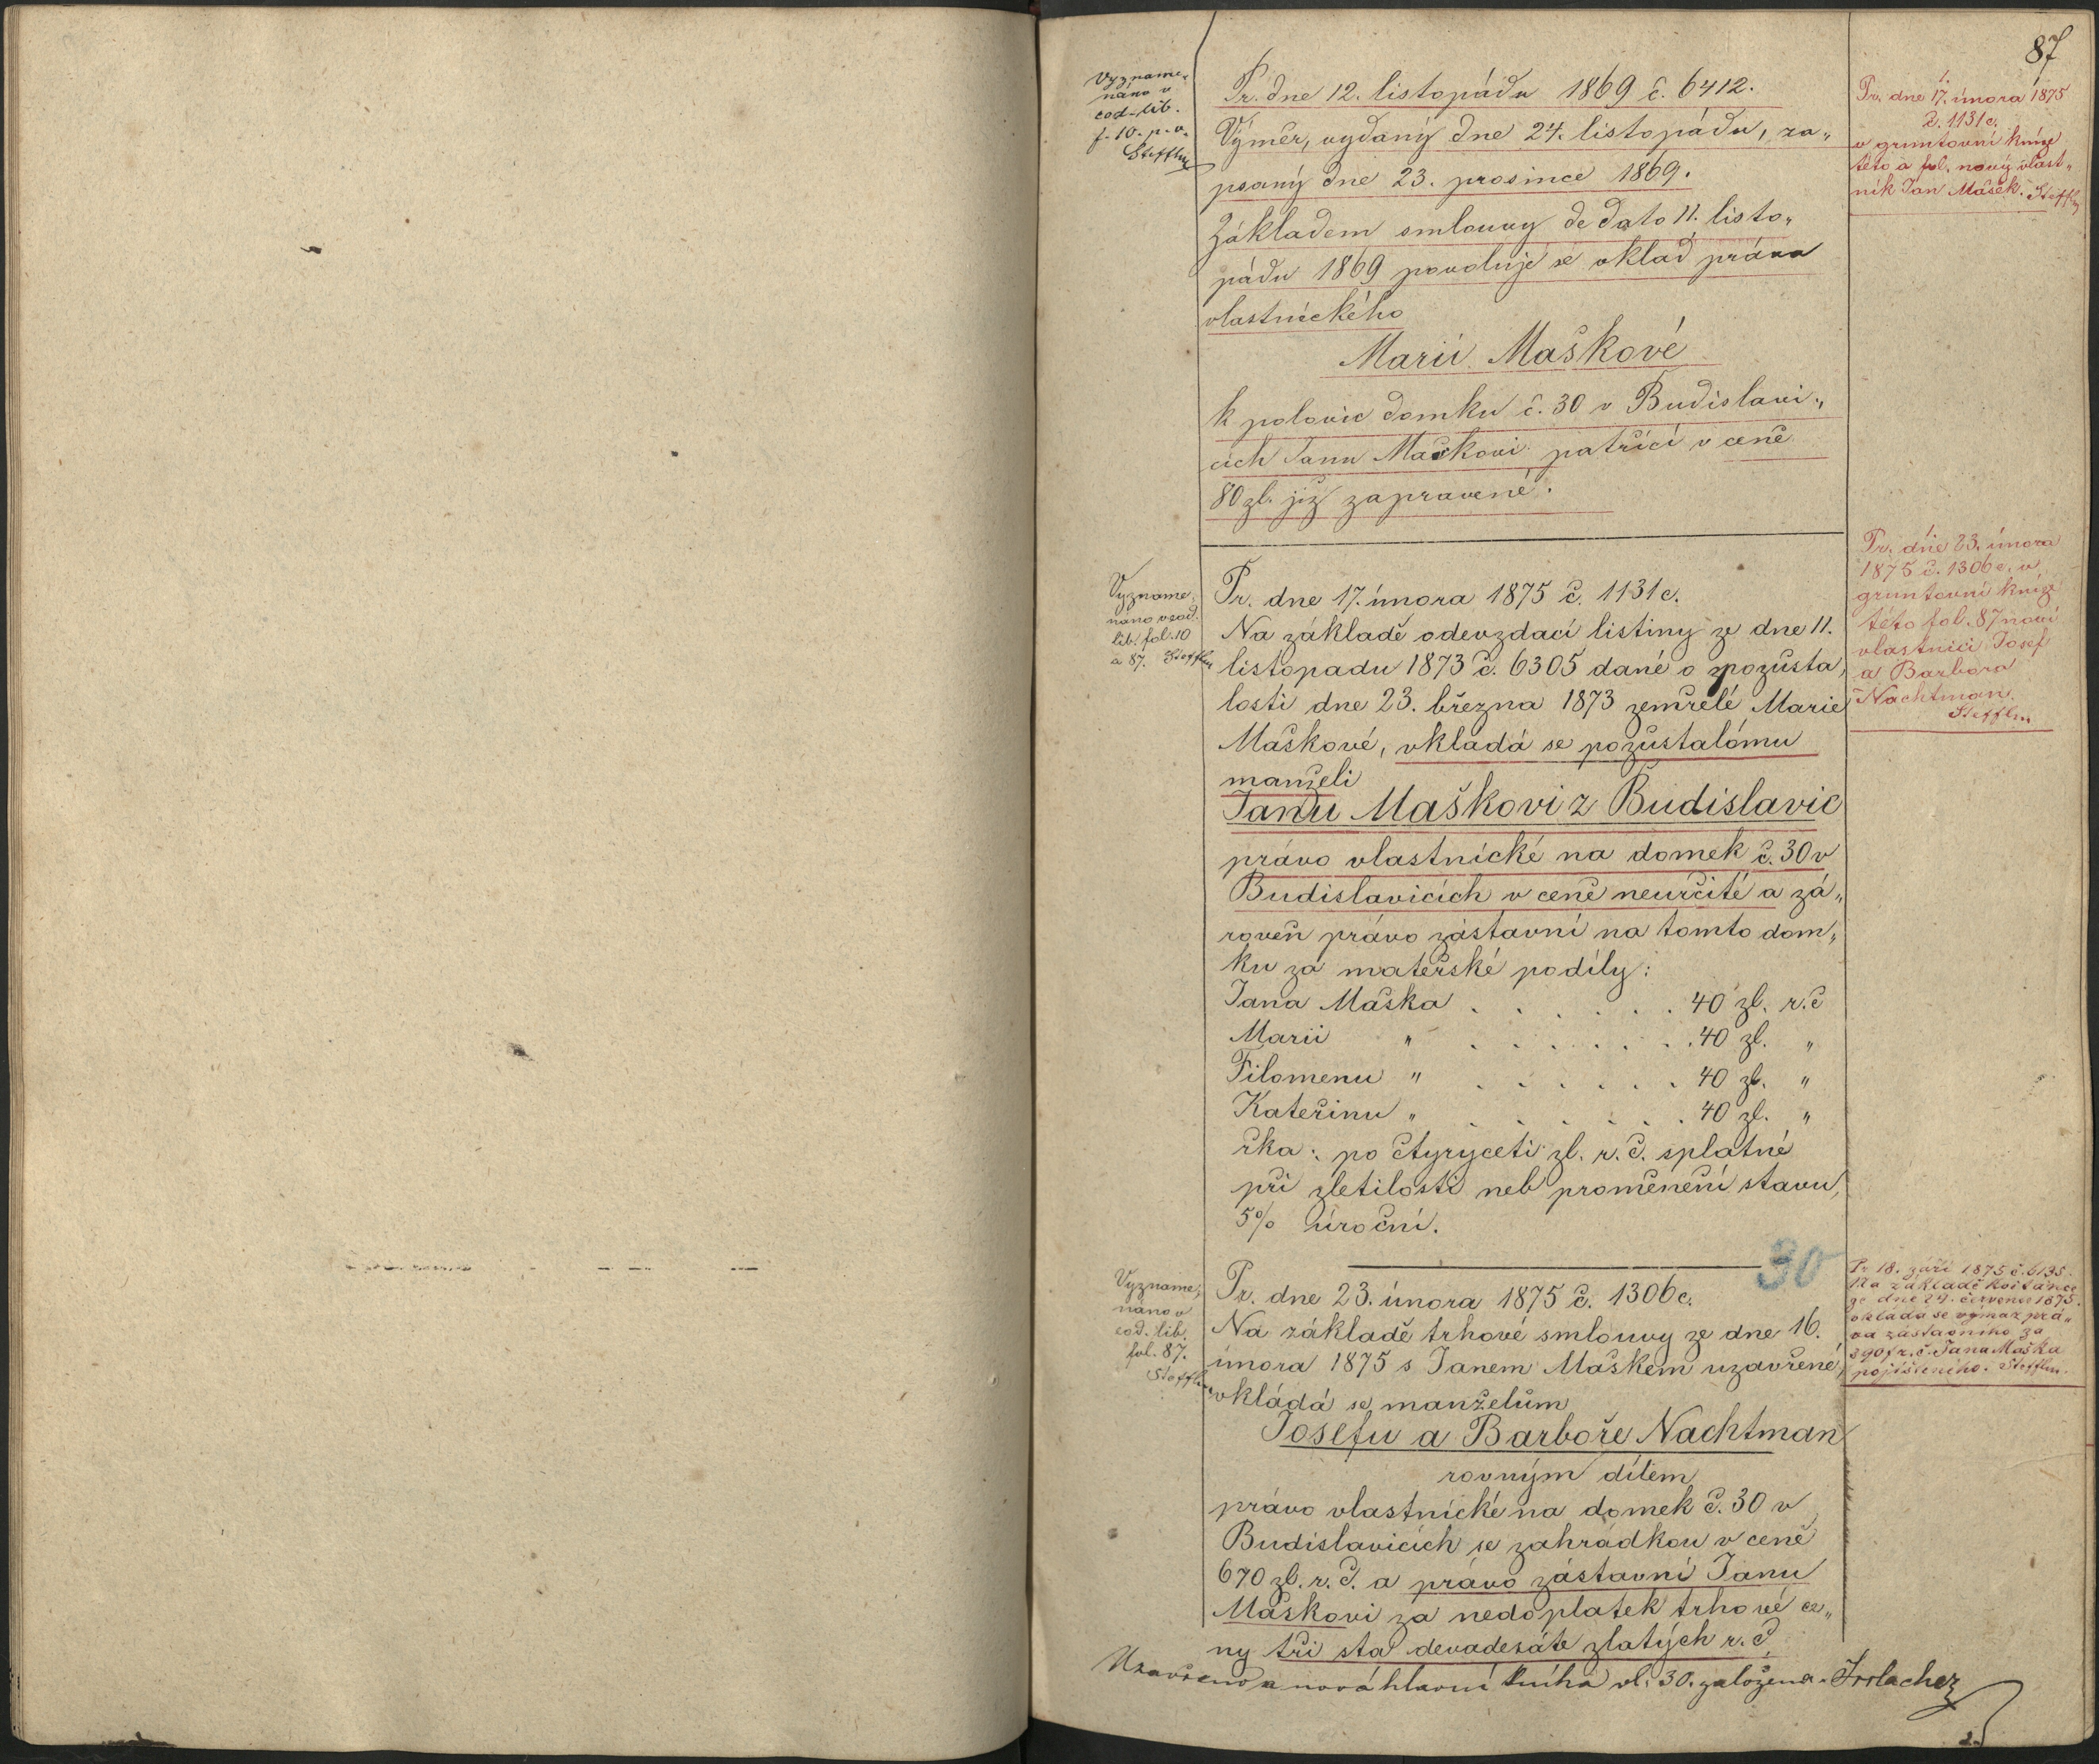 87
Vyzname„
náno v
cod. lib.
f. 10. p. v.
Steffln
Pr. dne 12. listopádu 1869 č. 6412.
Výměr, vydaný dne 24. listopádu, za„
psaný dne 23. prosince 1869.
Základem smlouvy de dato 11. listo„
pádu 1869 povoluje se vklad práva
vlastnického
Marii Maškové
k polovic domku č. 30 v Budislavi„
cích Janu Maškovi patřící v ceně
80 zl. již zapravené.
1.
Pr. dne 17. února 1875
č. 1131 c.
v gruntovní knize
této a fol. nový vlast„
ník Jan Mašek. Steffln
Vyzname„
náno v cod.
lib. fol. 10
a 87. Steffln
Pr. dne 17. února 1875 č. 1131 c.
Na základě odevzdací listiny ze dne 11.
listopadu 1873 č. 6305 dané o pozůsta„
losti dne 23. března 1873 zemřelé Marie
Maškové, vkládá se pozůstalému
manželi
Janu Maškovi z Budislavic
právo vlastnické na domek č. 30 v
Budislavicích v ceně neurčité a zá„
roveň právo zástavní na tomto dom„
ku za mateřské podíly:
Jana Maška . . . . . . 40 zl. r. č
Marii " . . . . . . 40 zl. "
Filomenu " . . . . . . 40 zl. "
Kateřinu " . . . . . . 40 zl. "
řka: po čtyryceti zl. r. č. splatné
při zletilosti neb proměnění stavu,
5% úroční.
Pr. dne 23. února
1875 č. 1306 c. v
gruntovní knize
této fol. 87 noví
vlastníci Josef
a Barbora
Nachtman.
Steffln
30
Vyzname„
náno v
cod. lib.
fol. 87.
Steffln
Pr. dne 23. února 1875 č. 1306 c.
Na základě trhové smlouvy ze dne 16.
února 1875 s Janem Maškem uzavřené,
vkládá se manželům
Josefu a Barboře Nachtman
rovným dílem
právo vlastnické na domek č. 30 v
Budislavicích se zahrádkou v ceně
670 zl. r. č. a právo zástavní Janu
Maškovi za nedoplatek trhové ce„
ny tři sta devadesáte zlatých r. č.
Pr 18. září 1875 č. 6135.
Na základě kvitance
ze dne 24. července 1875.
vkládá se výmaz prá„
va zástavního za
390 f r. č. Jana Maška
pojištěného. Steffln.
Uzavřeno a nová hlavní kniha vl. 30. založena.